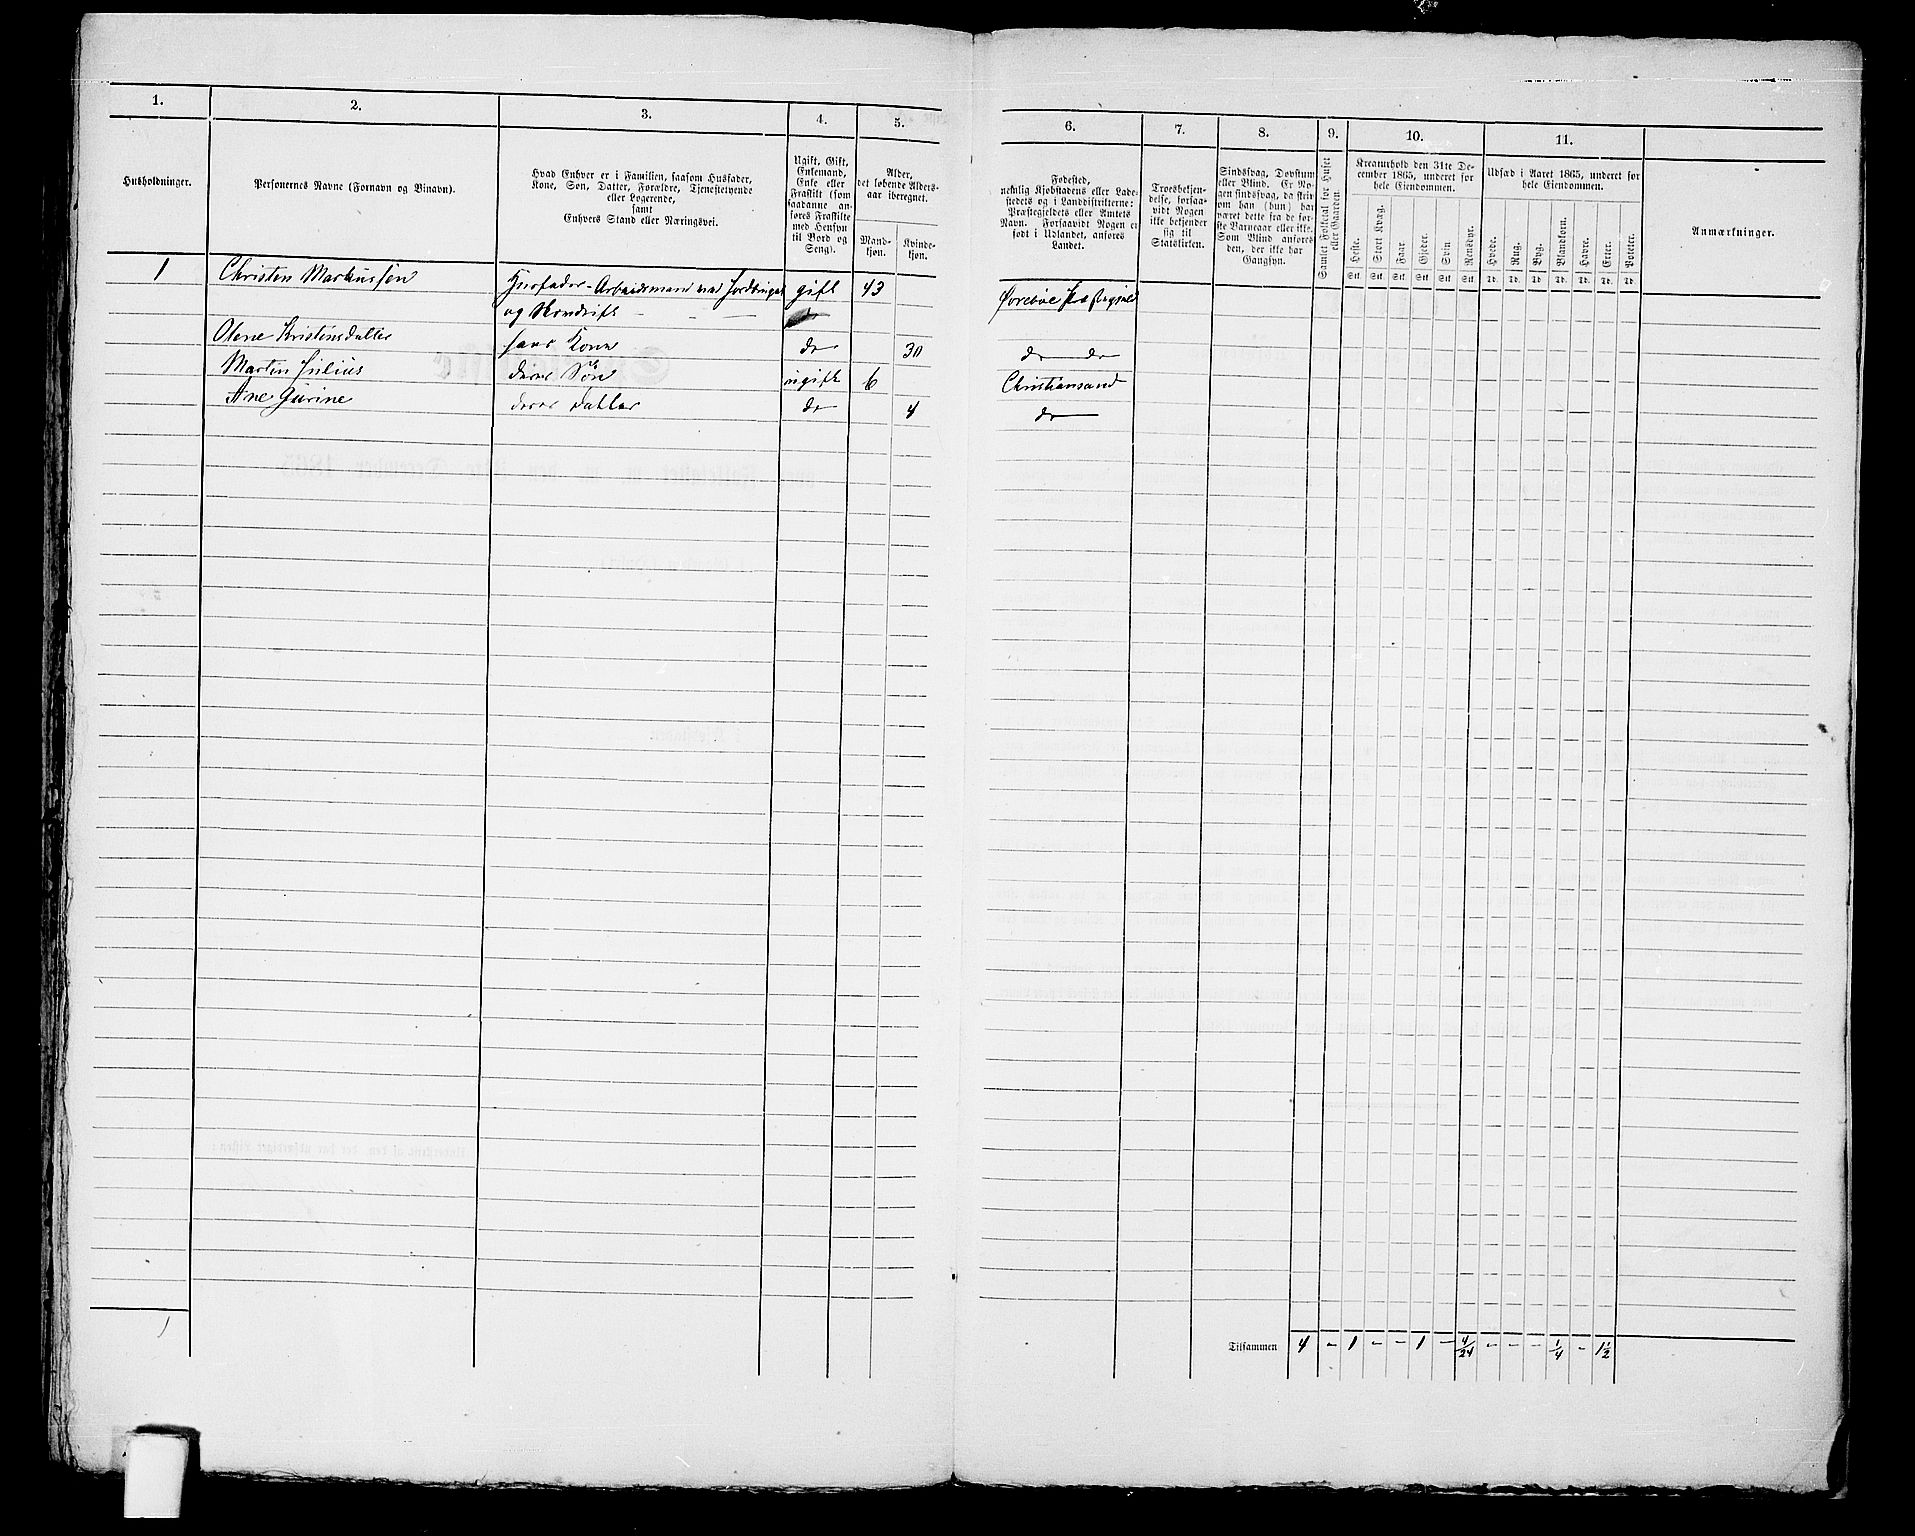 1.
2.
3.
4.
5.
Husholdninger.
Personernes Navne (Fornavn og Binavn).
Hvad Enhver er i Familien, saasom Husfader,
Kone, Søn, Datter, Forældre, Tjenestetyende
eller Logerende,
samt
Enhvers Stand eller Næringsvei.
Ugift, Gift,
Enkemand,
Enke eller
Fraskilt (som
saadanne an-
føres Fraskilte
med Hensyn
til Bord og
Seng).
Alder,
det løbende Alders-
aar iberegnet.
Mand-
kjøn.
Kvinde-
kjøn.
1 Christen Markussen Husfader - Arbeidsmand ved Jordbruget gift 43
og
Olene Kristensdatter hans Kone do 30
Martin Julius deres Søn ugift 6
Ane Gurine deres datter do 4
1
6.
7.
8.
9.
10.
11.
Fødested,
nemlig Kjøbstadens eller Lade-
stedets og i Landdistrikterne:
Præstegjeldets eller Amtets
Navn. Forsaavidt Nogen er
født i Udlandet, anføres
Landet.
Troesbekjen-
delse, forsaa-
vidt Nogen
ikke bekjender
sig til
Statskirken.
Sindssvag, Døvstum
eller Blind. Er No-
gen sindssvag, da skriv
om han (hun) har
været dette fra de før-
ste Barneaar eller ikke.
Som Blind anføres
den, der ikke har
Gangsyn.
Samlet Folketal for Huset
eller Gaarden.
Kreaturhold den 31te De-
cember 1865, underet for
hele Eiendommen.
Heste.
Stort Kvæg.
Faar.
Gjeder.
Svin.
Rensdyr.
Stk. Stk. Stk. Stk. Stk. Stk.
Udsæd i Aaret 1865, underet for
hele Eiendommen.
Hvede.
Rug.
Byg.
Blandkorn.
Havre.
Erter.
Poteter.
Td. Td. Td. Td. Td. Td. Td.
Anmærkninger.
do do
Christiansand
do
Tilsammen 4 - 1 - - 1 - 4/24 - - - 1/4 - 1 1/2